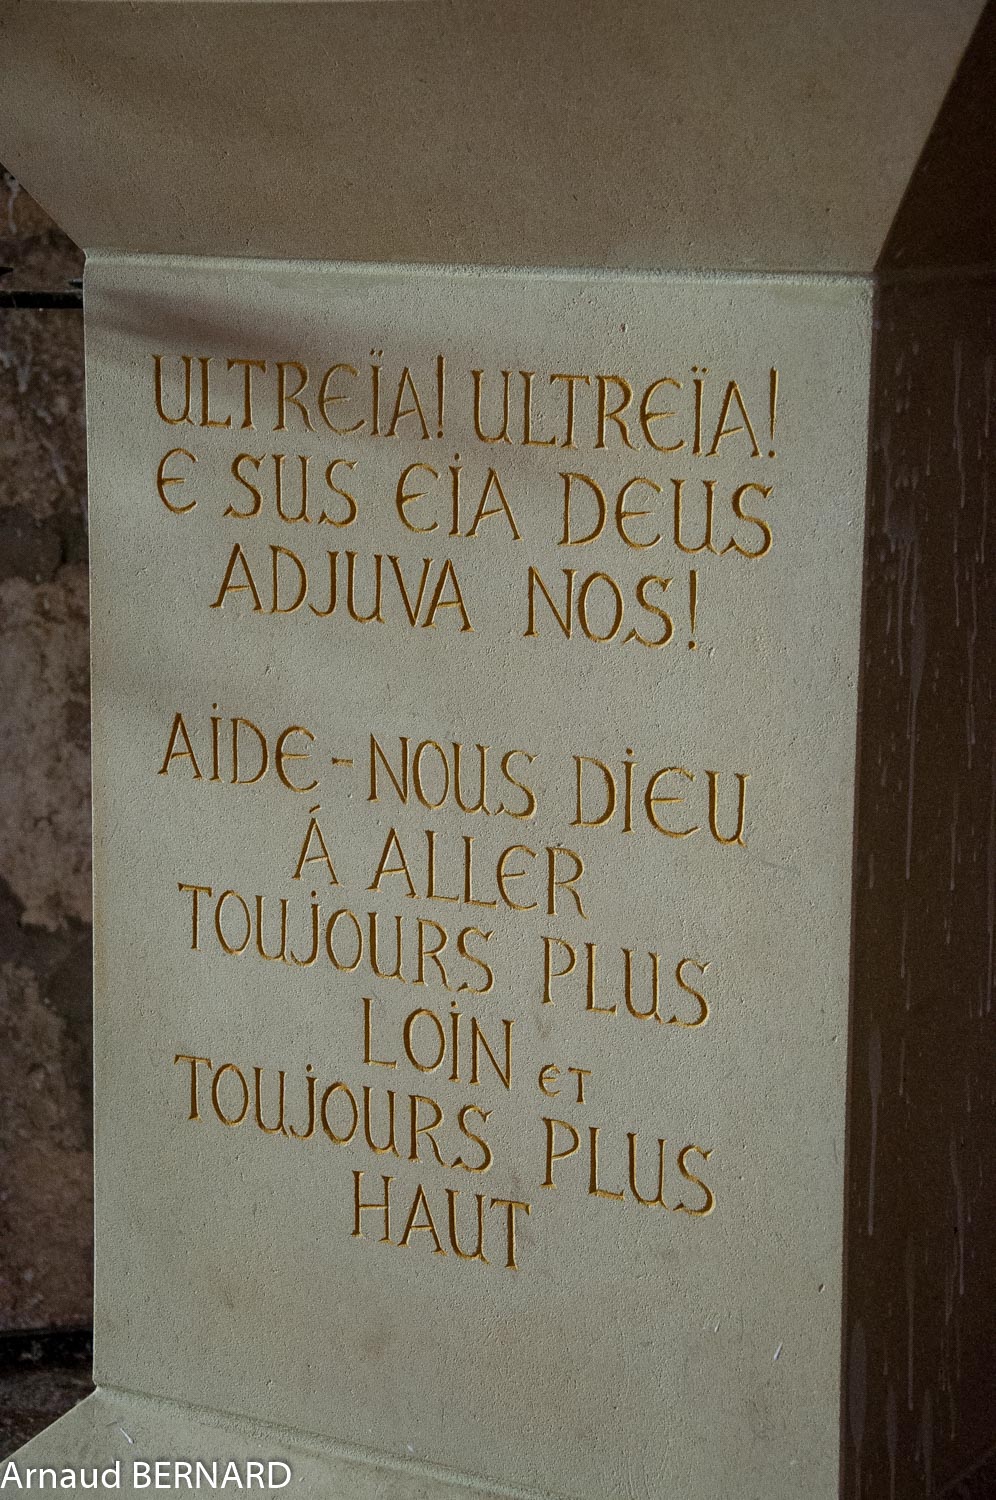 ULTREÏA! ULTREÏA!
E SUS EIA DEUS
ADJUVA NOS!
AIDE-NOUS DIEU
Á ALLER
TOUJOURS PLUS
LOIN ET
TOUJOURS PLUS
HAUT
Arnaud BERNARD